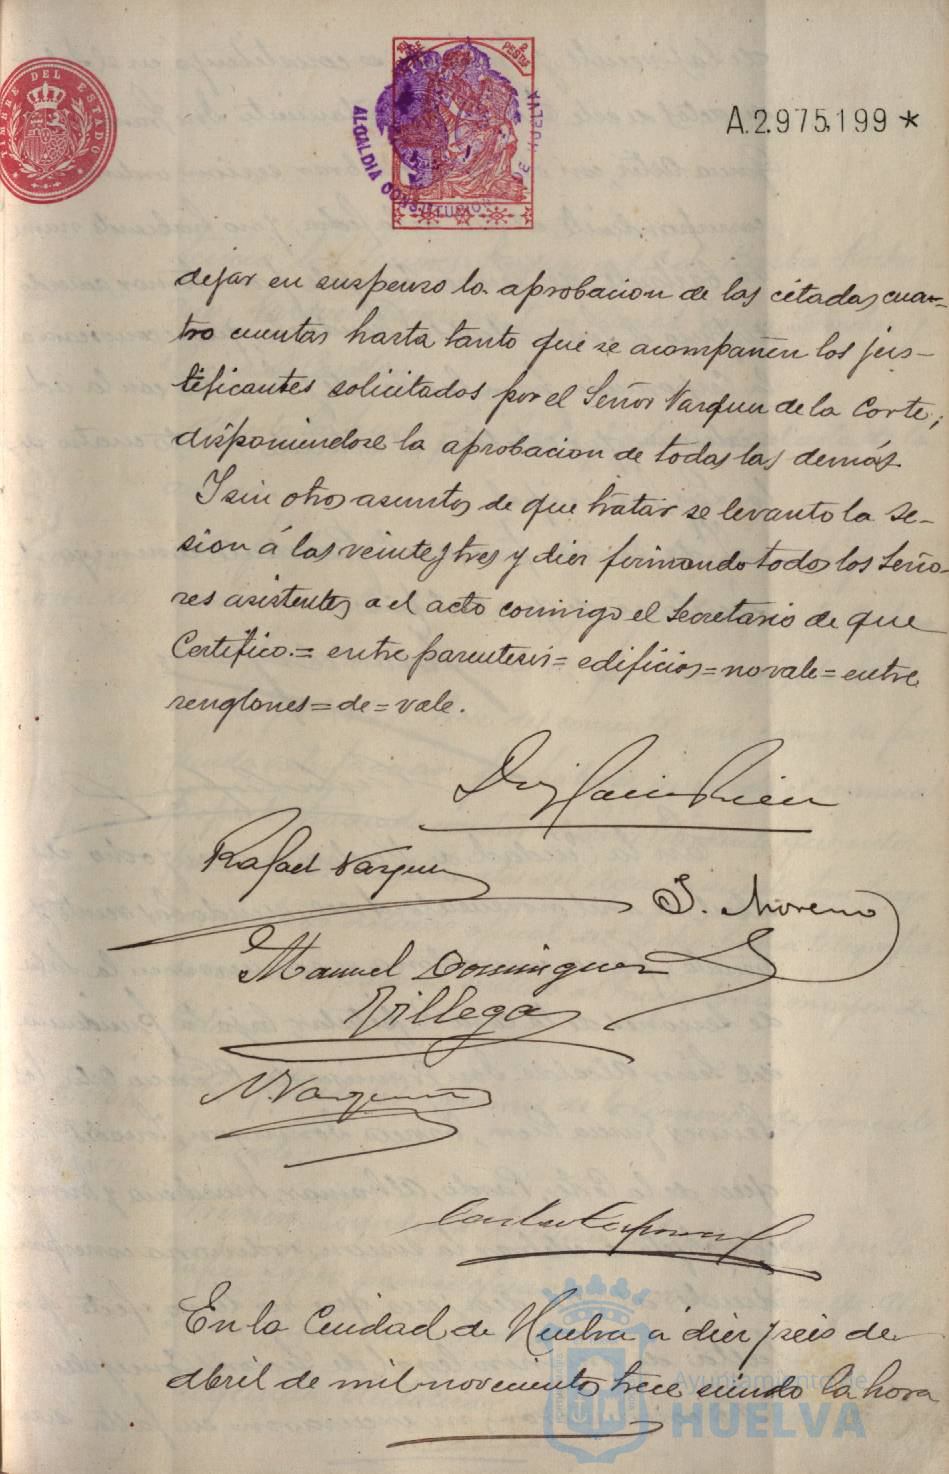 TIMBRE DEL ESTADO
2 PESETAS
ALCALDIA CONSTITUCIONAL DE HUELVA
A.2.975,199 *
dejar en suspenso la aprobacion de las citadas cua-
tro cuentas hasta tanto que se acompañen los jus-
tificantes solicitados por el Señor Vazquez de la Corte;
disponiendose la aprobacion de todas las demás.
Y sin otros asuntos de que tratar se levanto la se-
sion á las veintey tres y diez firmando todos los Seño-
res asistentes a el acto conmigo el Secretario de que
Certifico.= entre parentesis= edificios= no vale= entre
renglones= de= vale.
Rafael Vazquez
J. Moreno
Manuel Dominguez
Villegas
N. Vazquez
En la Ciudad de Huelva á diez y seis de
abril de mil novecientos trece siendo la hora
Ayuntamiento de
HUELVA